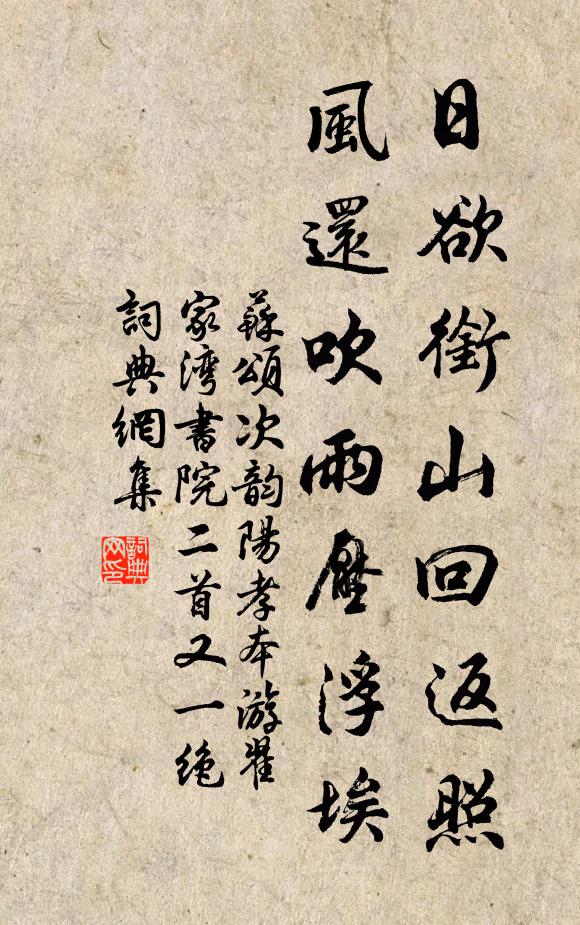 日欲銜山回返照
風還吹雨壓浮埃
蘇頌次韵陽孝本游翟
家灣書院二首又一绝
詞典網集
詞典
网印